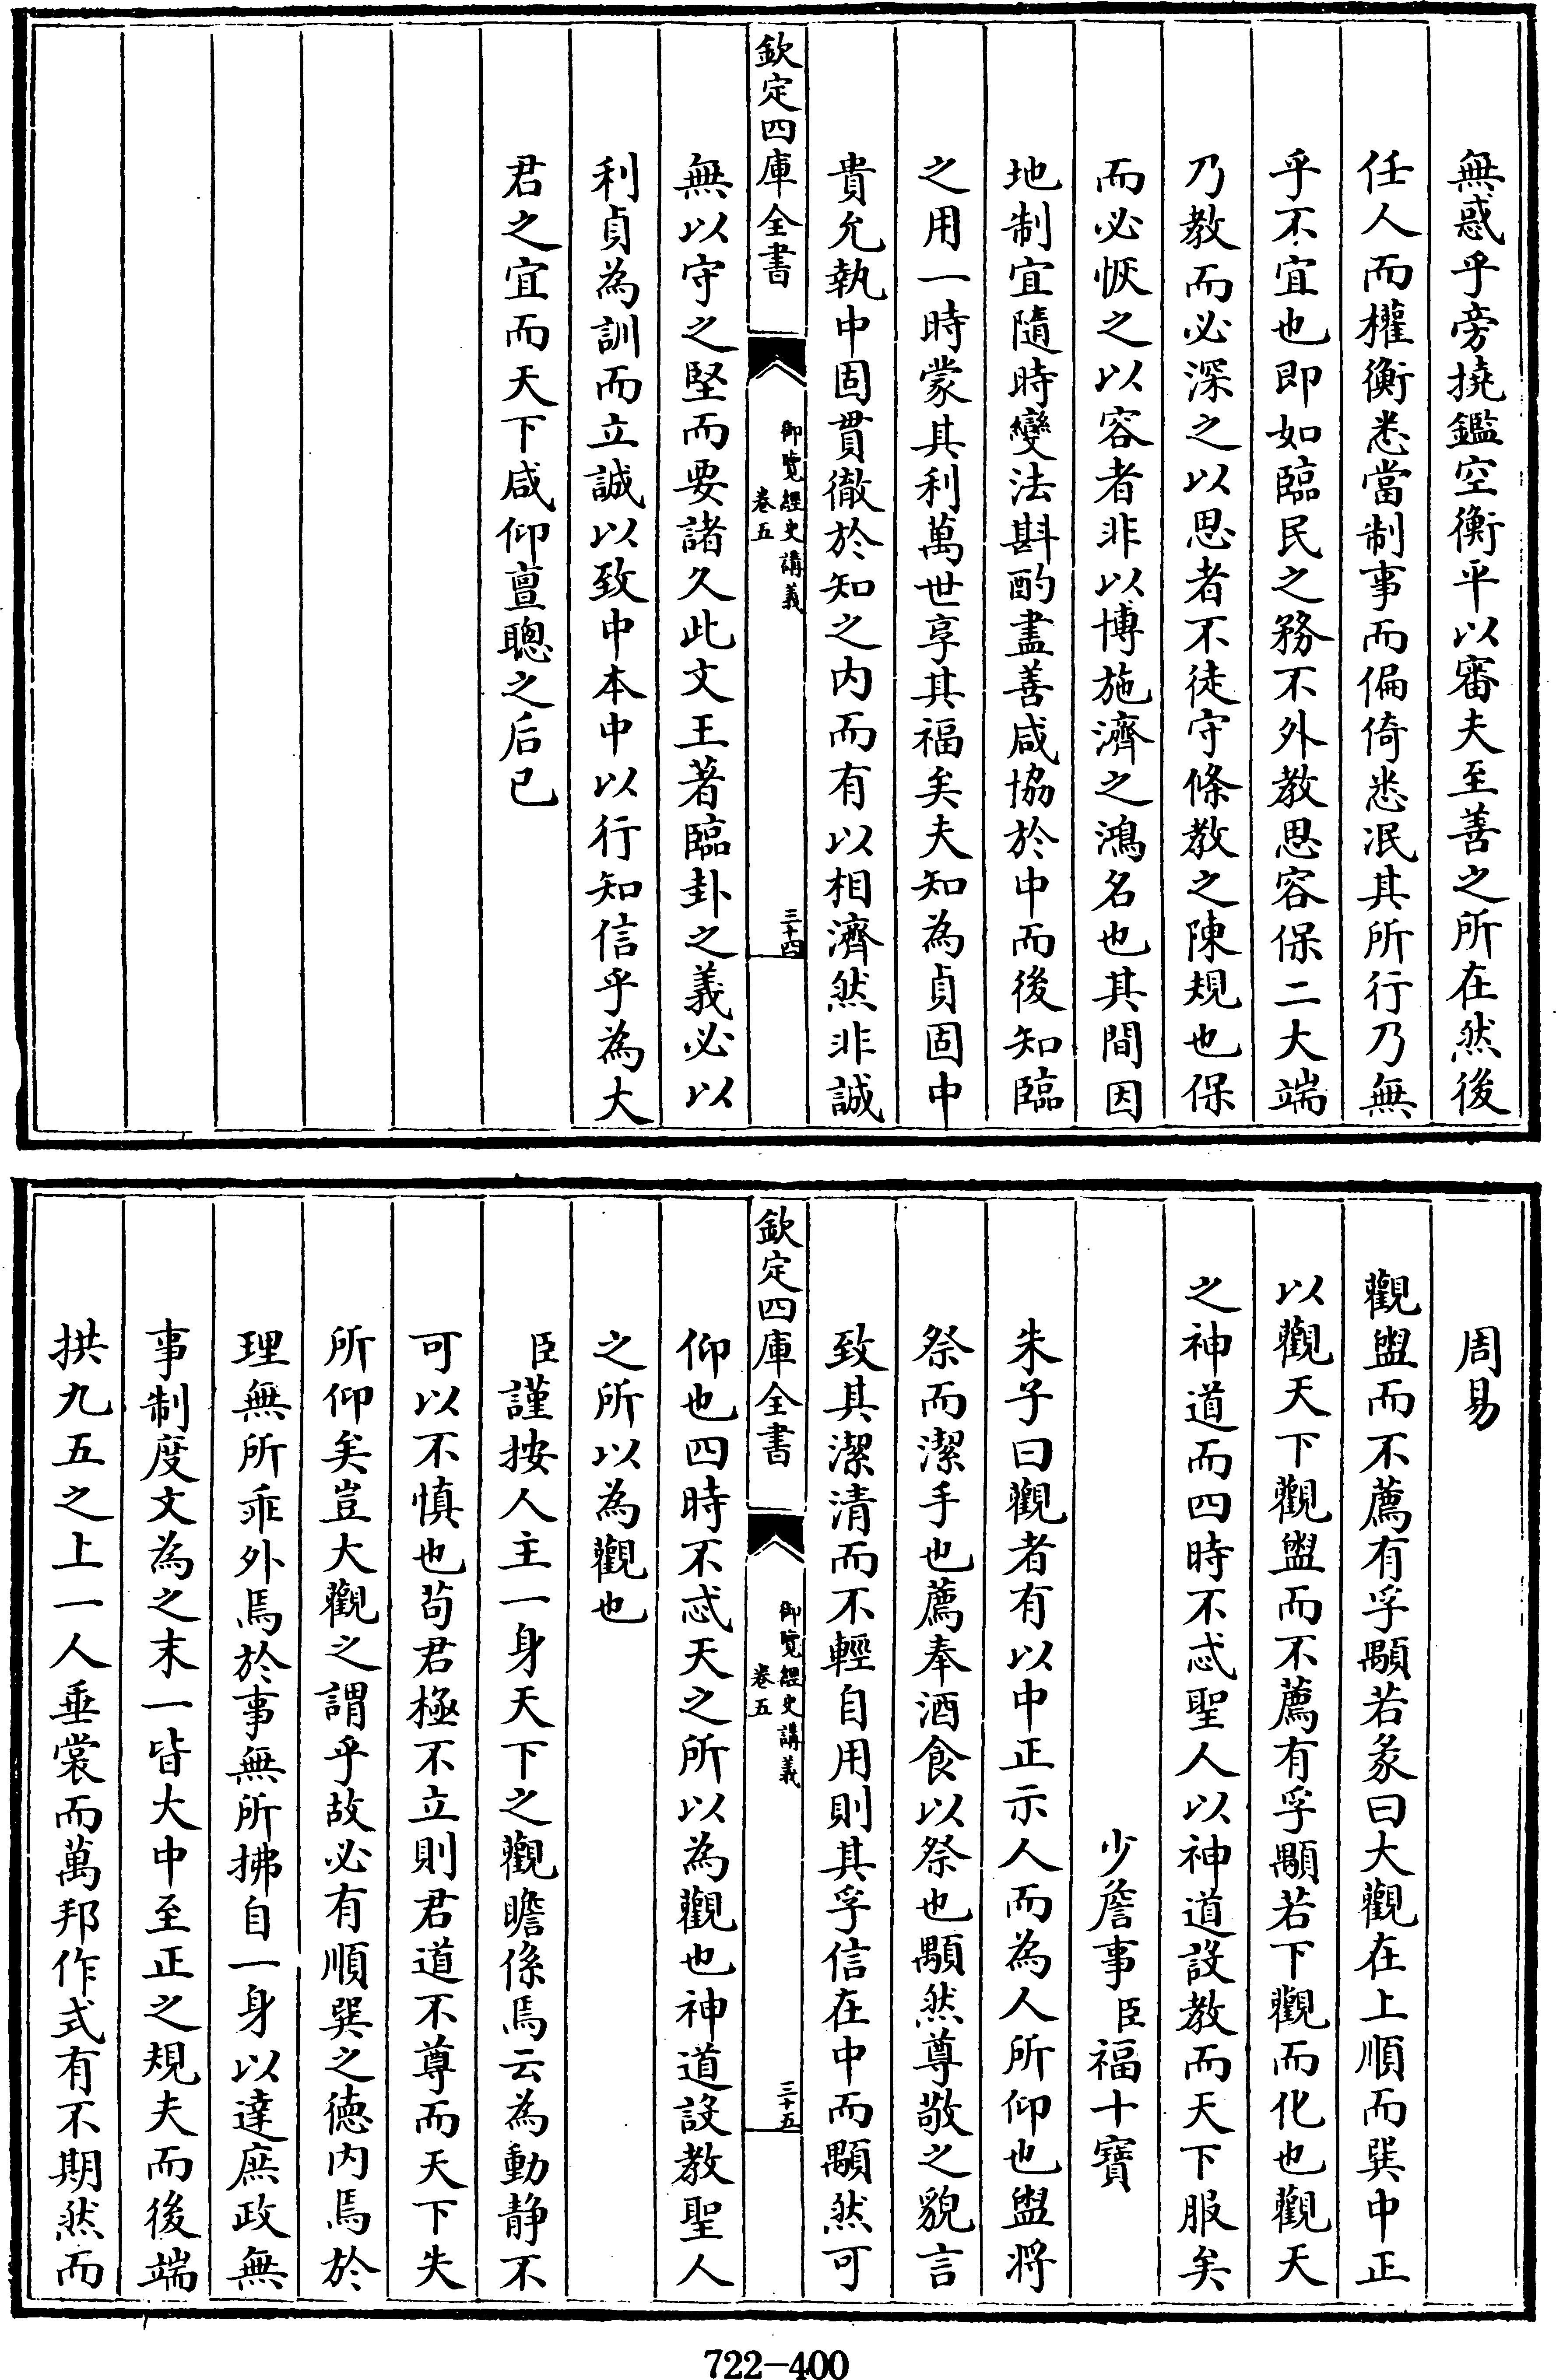 無惑乎旁撓鑑空衡平以審夫至善之所在然後
任人而權衡悉當制事而偏倚悉泯其所行乃無
乎不宜也即如臨民之務不外教思容保二大端
乃教而必深之以思者不徒守條教之陳規也保
而必恢之以容者非以博施濟之鴻名也其間因
地制宜隨時變法斟酌盡善咸協於中而後知臨
之用一時蒙其利萬世享其福矣夫知為貞固中
貴允執中固貫徹於知之内而有以相濟然非誠
欽定四庫全書
御覽經史講義
卷五
三十四
無以守之堅而要諸久此文王著臨卦之義必以
利貞為訓而立誠以致中本中以行知信乎為大
君之宜而天下咸仰亶聰之后已
周易
觀盥而不薦有孚顒若彖曰大觀在上順而巽中正
以觀天下觀盥而不薦有孚顒若下觀而化也觀天
之神道而四時不忒聖人以神道設教而天下服矣
少詹事臣福十寶
朱子曰觀者有以中正示人而為人所仰也盥將
祭而潔手也薦奉酒食以祭也顒然尊敬之貌言
致其潔清而不輕自用則其孚信在中而顒然可
欽定四庫全書
御覽經史講義
卷五
三十五
仰也四時不忒天之所以為觀也神道設教聖人
之所以為觀也
臣謹按人主一身天下之觀瞻係焉云為動静不
可以不慎也苟君極不立則君道不尊而天下失
所仰矣豈大觀之謂乎故必有順巽之德内焉於
理無所乖外焉於事無所拂自一身以達庶政無
事制度文為之末一皆大中至正之規夫而後端
拱九五之上一人垂裳而萬邦作式有不期然而
722-400